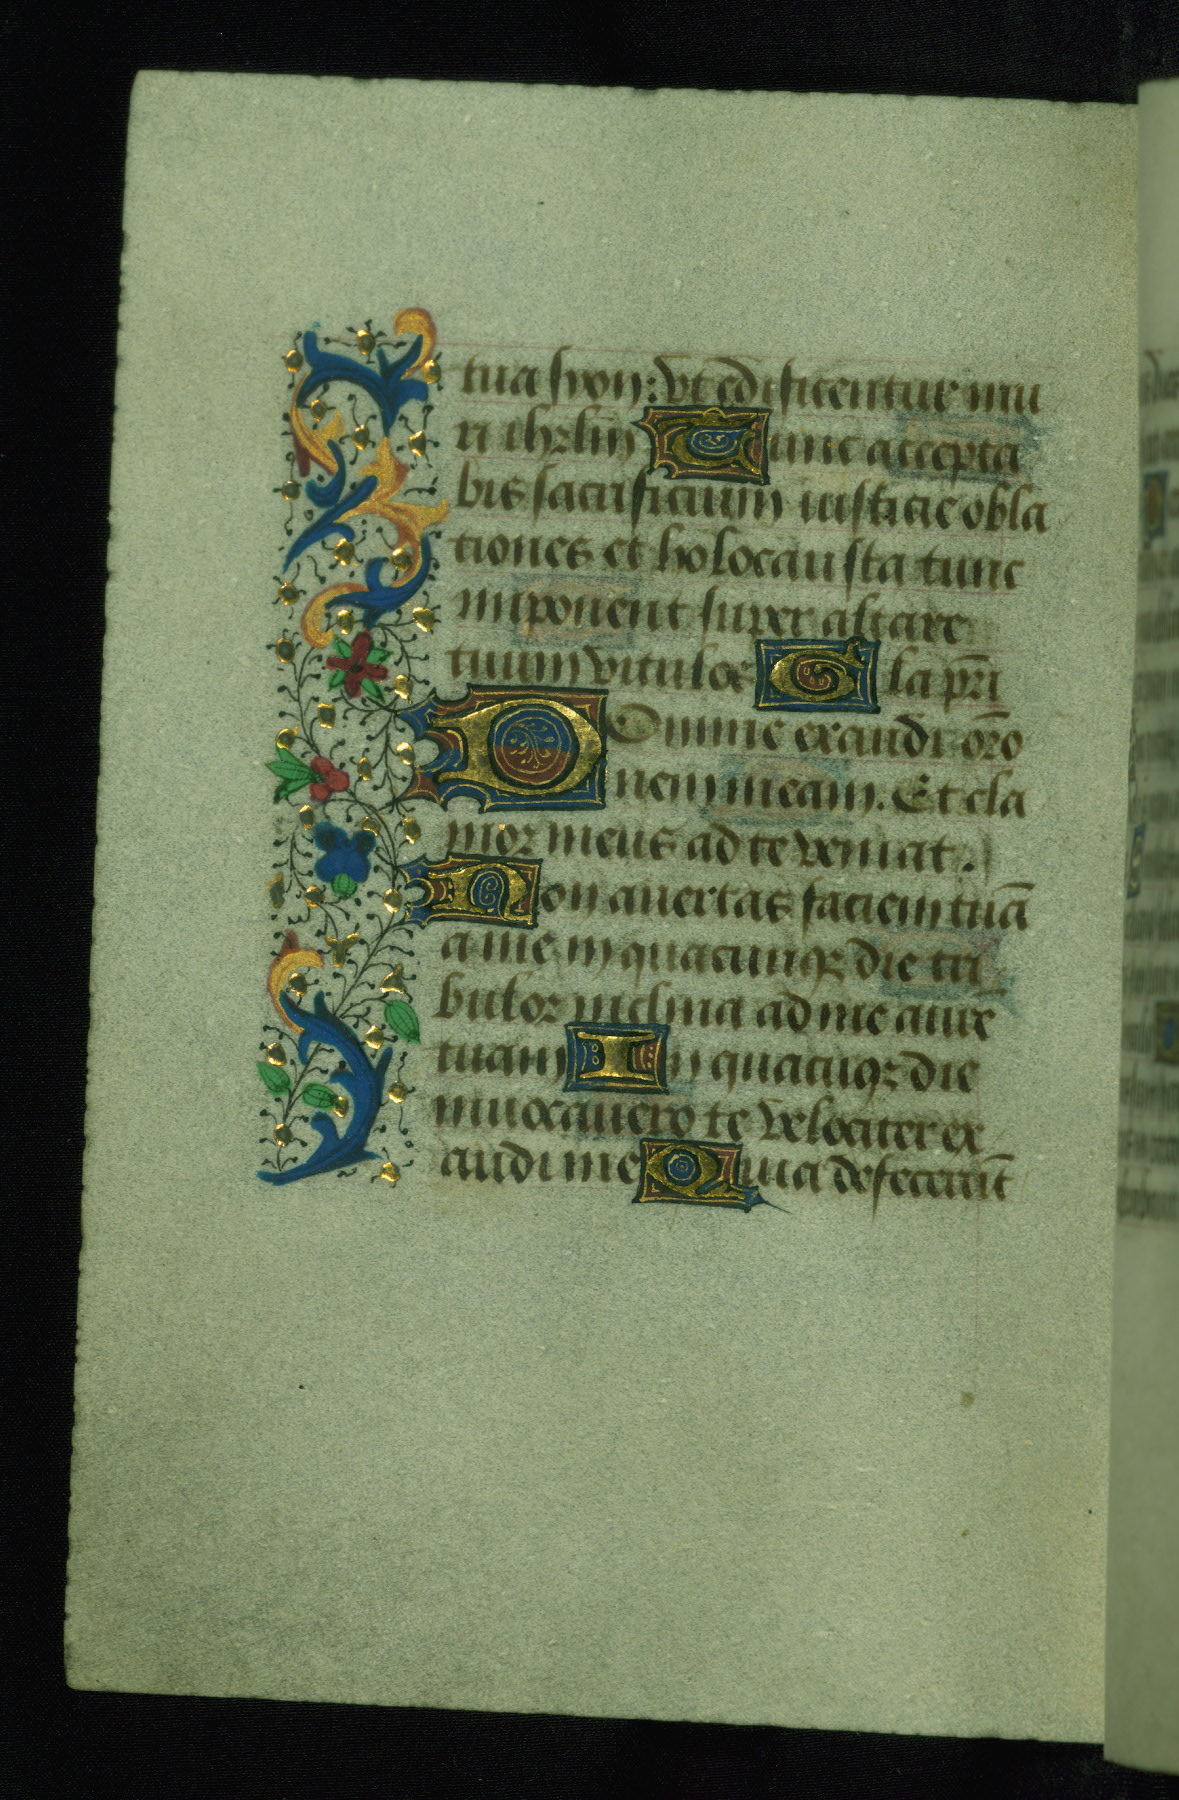 tua syon: vt edificentur mu
ri ihrl̄m Tunc accepta
bis sacrificium iusticie obla
tiones et holocausta tunc
imponent super altare
tuum vitulos Gla pr̄i
DOmine exaudi or̄o
nem meam. Et cla
mor meus ad te veniat.
Non auertas faciem tuā
a me in quacunqꝫ die tri
bulor inclina ad me aure
tuam In quacuqꝫ die
inuocauero te velociter ex
audi me Quia defecerūt